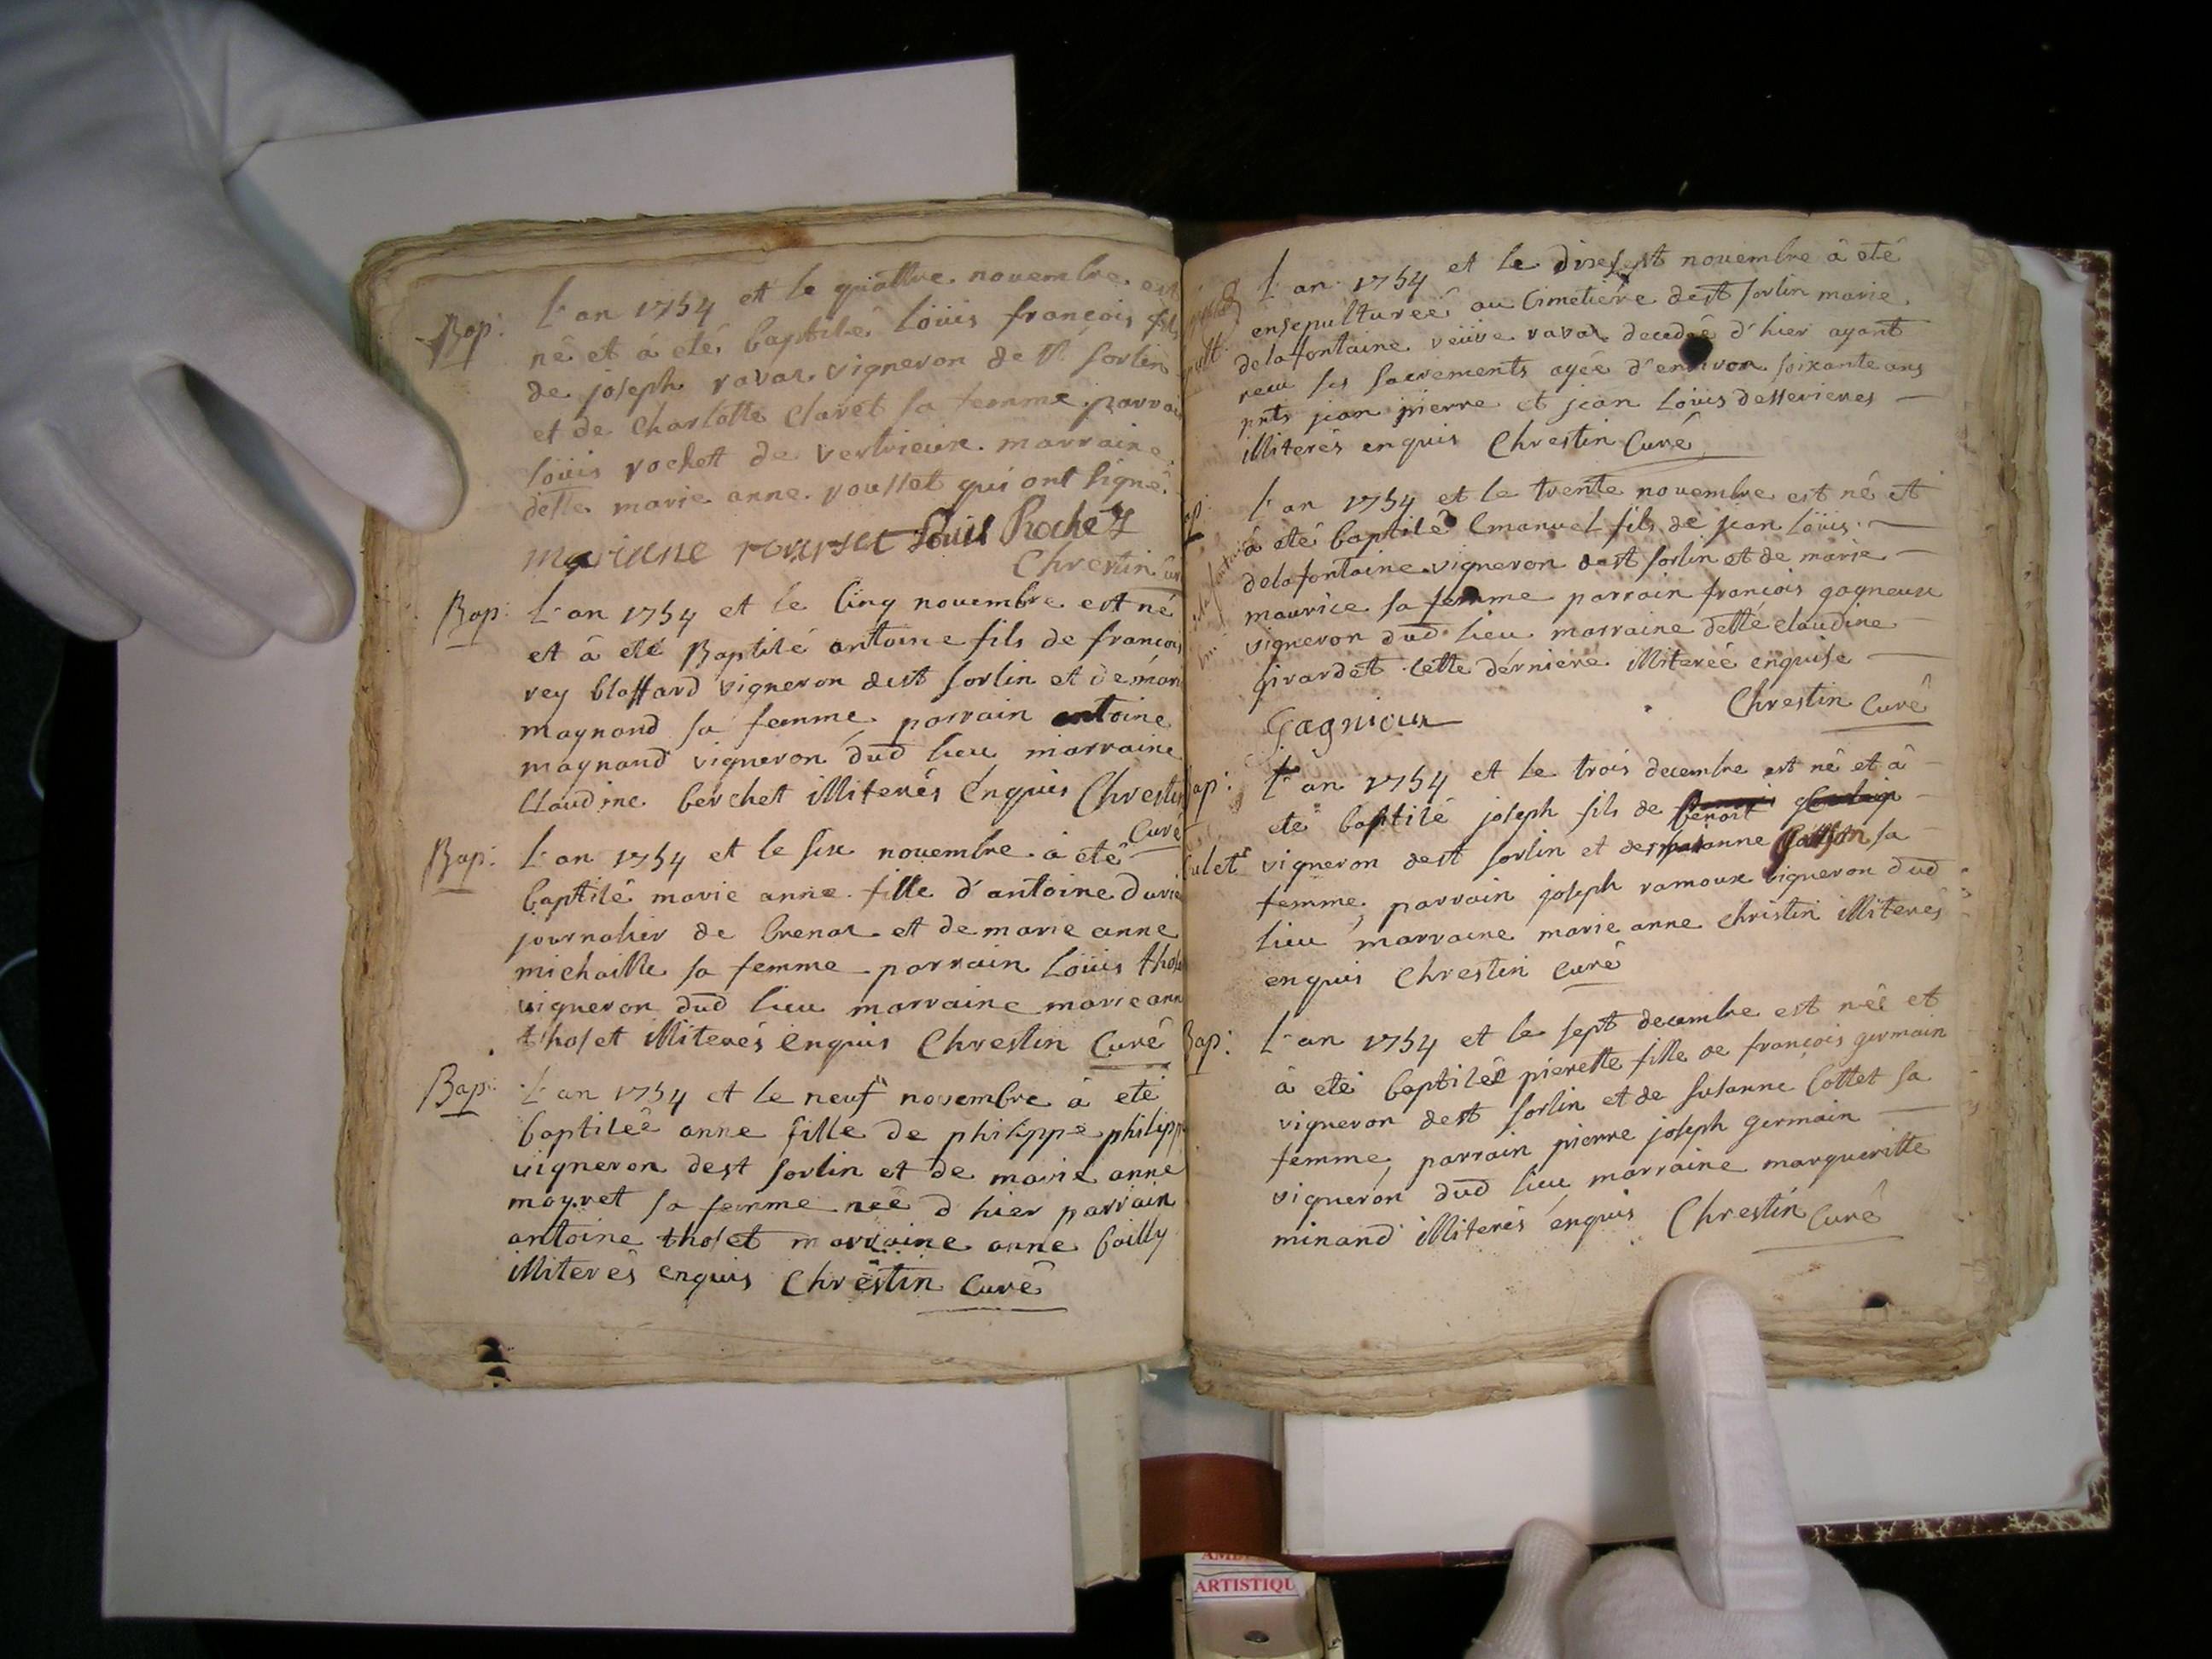 Bap: L'an 1754 et le quattre novembre est
né et à eté baptisé Loüis françois fils
de joseph ravat vigneron de st sorlin
et de Charlotte Claret sa femme parrain
loüis rochett de vertrieux marraine
delle marie anne rousset qui ont signé
mariane rousset Louis Rochet
Chrestin cur
Bap: L'an 1754 et le cinq novembre est né
et à eté Baptisé antoine fils de françois
rey blossard vigneron dest sorlin et de mar
magnand sa femme parrain antoine
magnand vigneron dud lieu marraine
Claudine berchet illiterés Enquis Chrestin
Curé
Bap: L'an 1754 et le six novembre à eté
baptisé marie anne fille d'antoine
journalier de brenaz et de marie anne
michaille sa femme parrain Loüis thos
vigneron dud lieu marraine marie ann
thoset illiterés Enquis Chrestin Curé
Bap: L'an 1754 et le neuf novembre à eté
baptiseé anne fille de philippe philipp
vigneron dest sorlin et de marie anne
mayret sa femme neé d'hier parrain
antoine thoset marraine anne bailly
illiterés enquis Chrestin Curé
L'an 1754 et le disept novembre à eté
ensepultureé au Cimetiére dest sorlin marie
delafontaine veüve ravaz decedeé d'hier ayant
recu ses sacrements ageé d'environ soixante ans
pnts jean pierre et jean Loüis dessevieres
illiterés enquis Chrestin Curé
ap: L'an 1754 et le trente novembre est né et
à eté baptisé Emanuel fils de jean loüis
delafontaine vigneron dest sorlin et de marie
maurice sa femme parrain françois gagneux
vigneron dud lieu marraine delle claudine
girardet cette derniere illitereé enquise
Chrestin Curé
Gagnieux
Bap: L'an 1754 et le trois decembre est né et à
eté baptisé joseph fils de benoit
culet vigneron dest sorlin et de anne sa
femme, parrain joseph ramoux vigneron dud
lieu marraine marie anne christin illiterés
enquis Chrestin Curé
Bap: L'an 1754 et le sept decembre est neé et
à eté baptiseé pierette fille de françois germain
vigneron dest sorlin et de susanne Cottet sa
femme, parrain pierre joseph germain
vigneron dud lieu marraine margueritte
minand illiterés enquis Chrestin Curé
ARTISTIQU